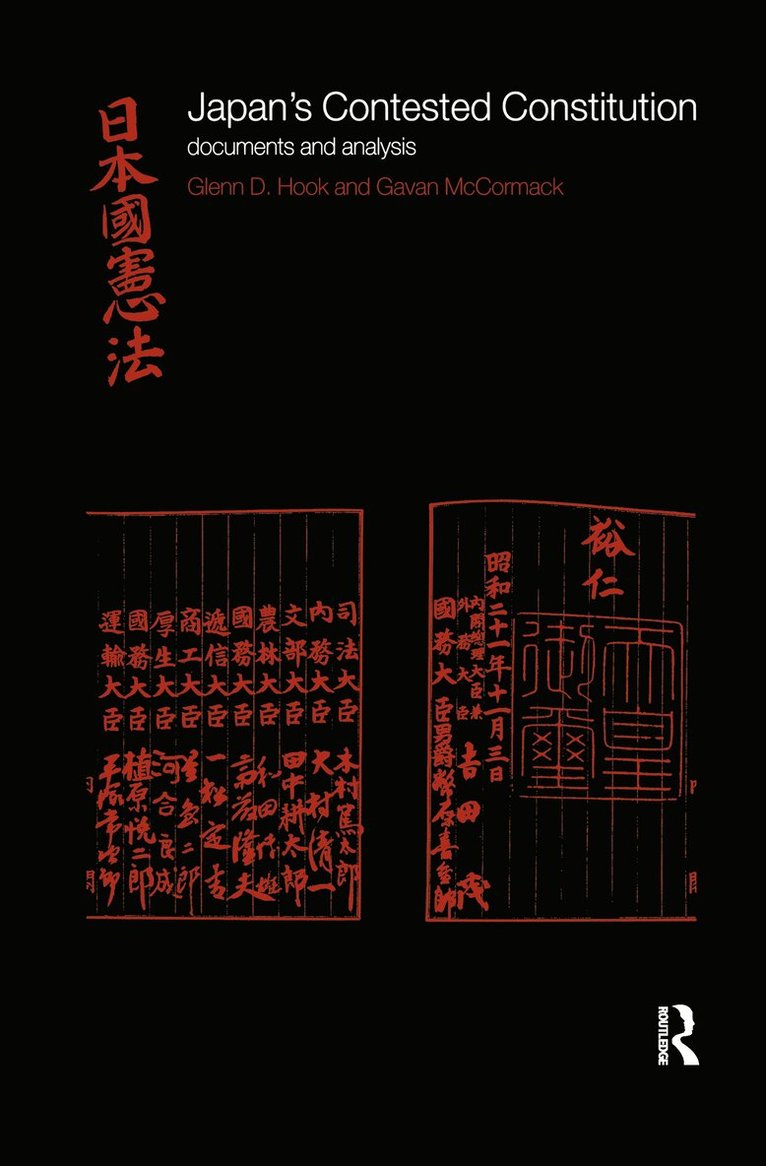 Japan's Contested Constitution
documents and analysis
Glenn D. Hook and Gavan McCormack
日本國憲法
裕仁
天皇
御璽
昭和二十一年十一月三日
内閣總理大臣兼
外務大臣 吉田茂
國務大臣 男爵幣原喜重郎
司法大臣 木村篤太郎
内務大臣 大村清一
文部大臣 田中耕太郎
農林大臣 和田博雄
國務大臣 斎藤隆夫
遞信大臣 一松定吉
商工大臣 星島二郎
厚生大臣 河合良成
國務大臣 植原悦二郎
運輸大臣 平塚常次郎
ROUTLEDGE